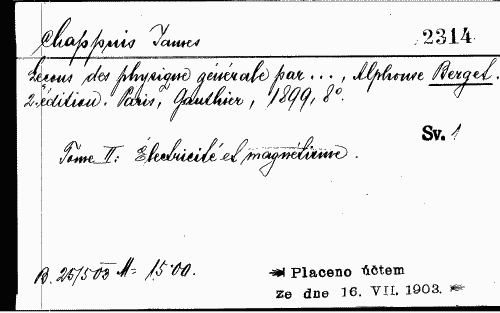 Chappuis James 2314
Lecons des physique générale par ..., Alphonse Berget.
2. édition. Paris, Gauthier, 1899, 8°.
Sv. 1
Tome II: Électricité et magnétisme.
B. 25/5 03 M= 15·00.
Placeno účtem
ze dne 16. VII. 1903.